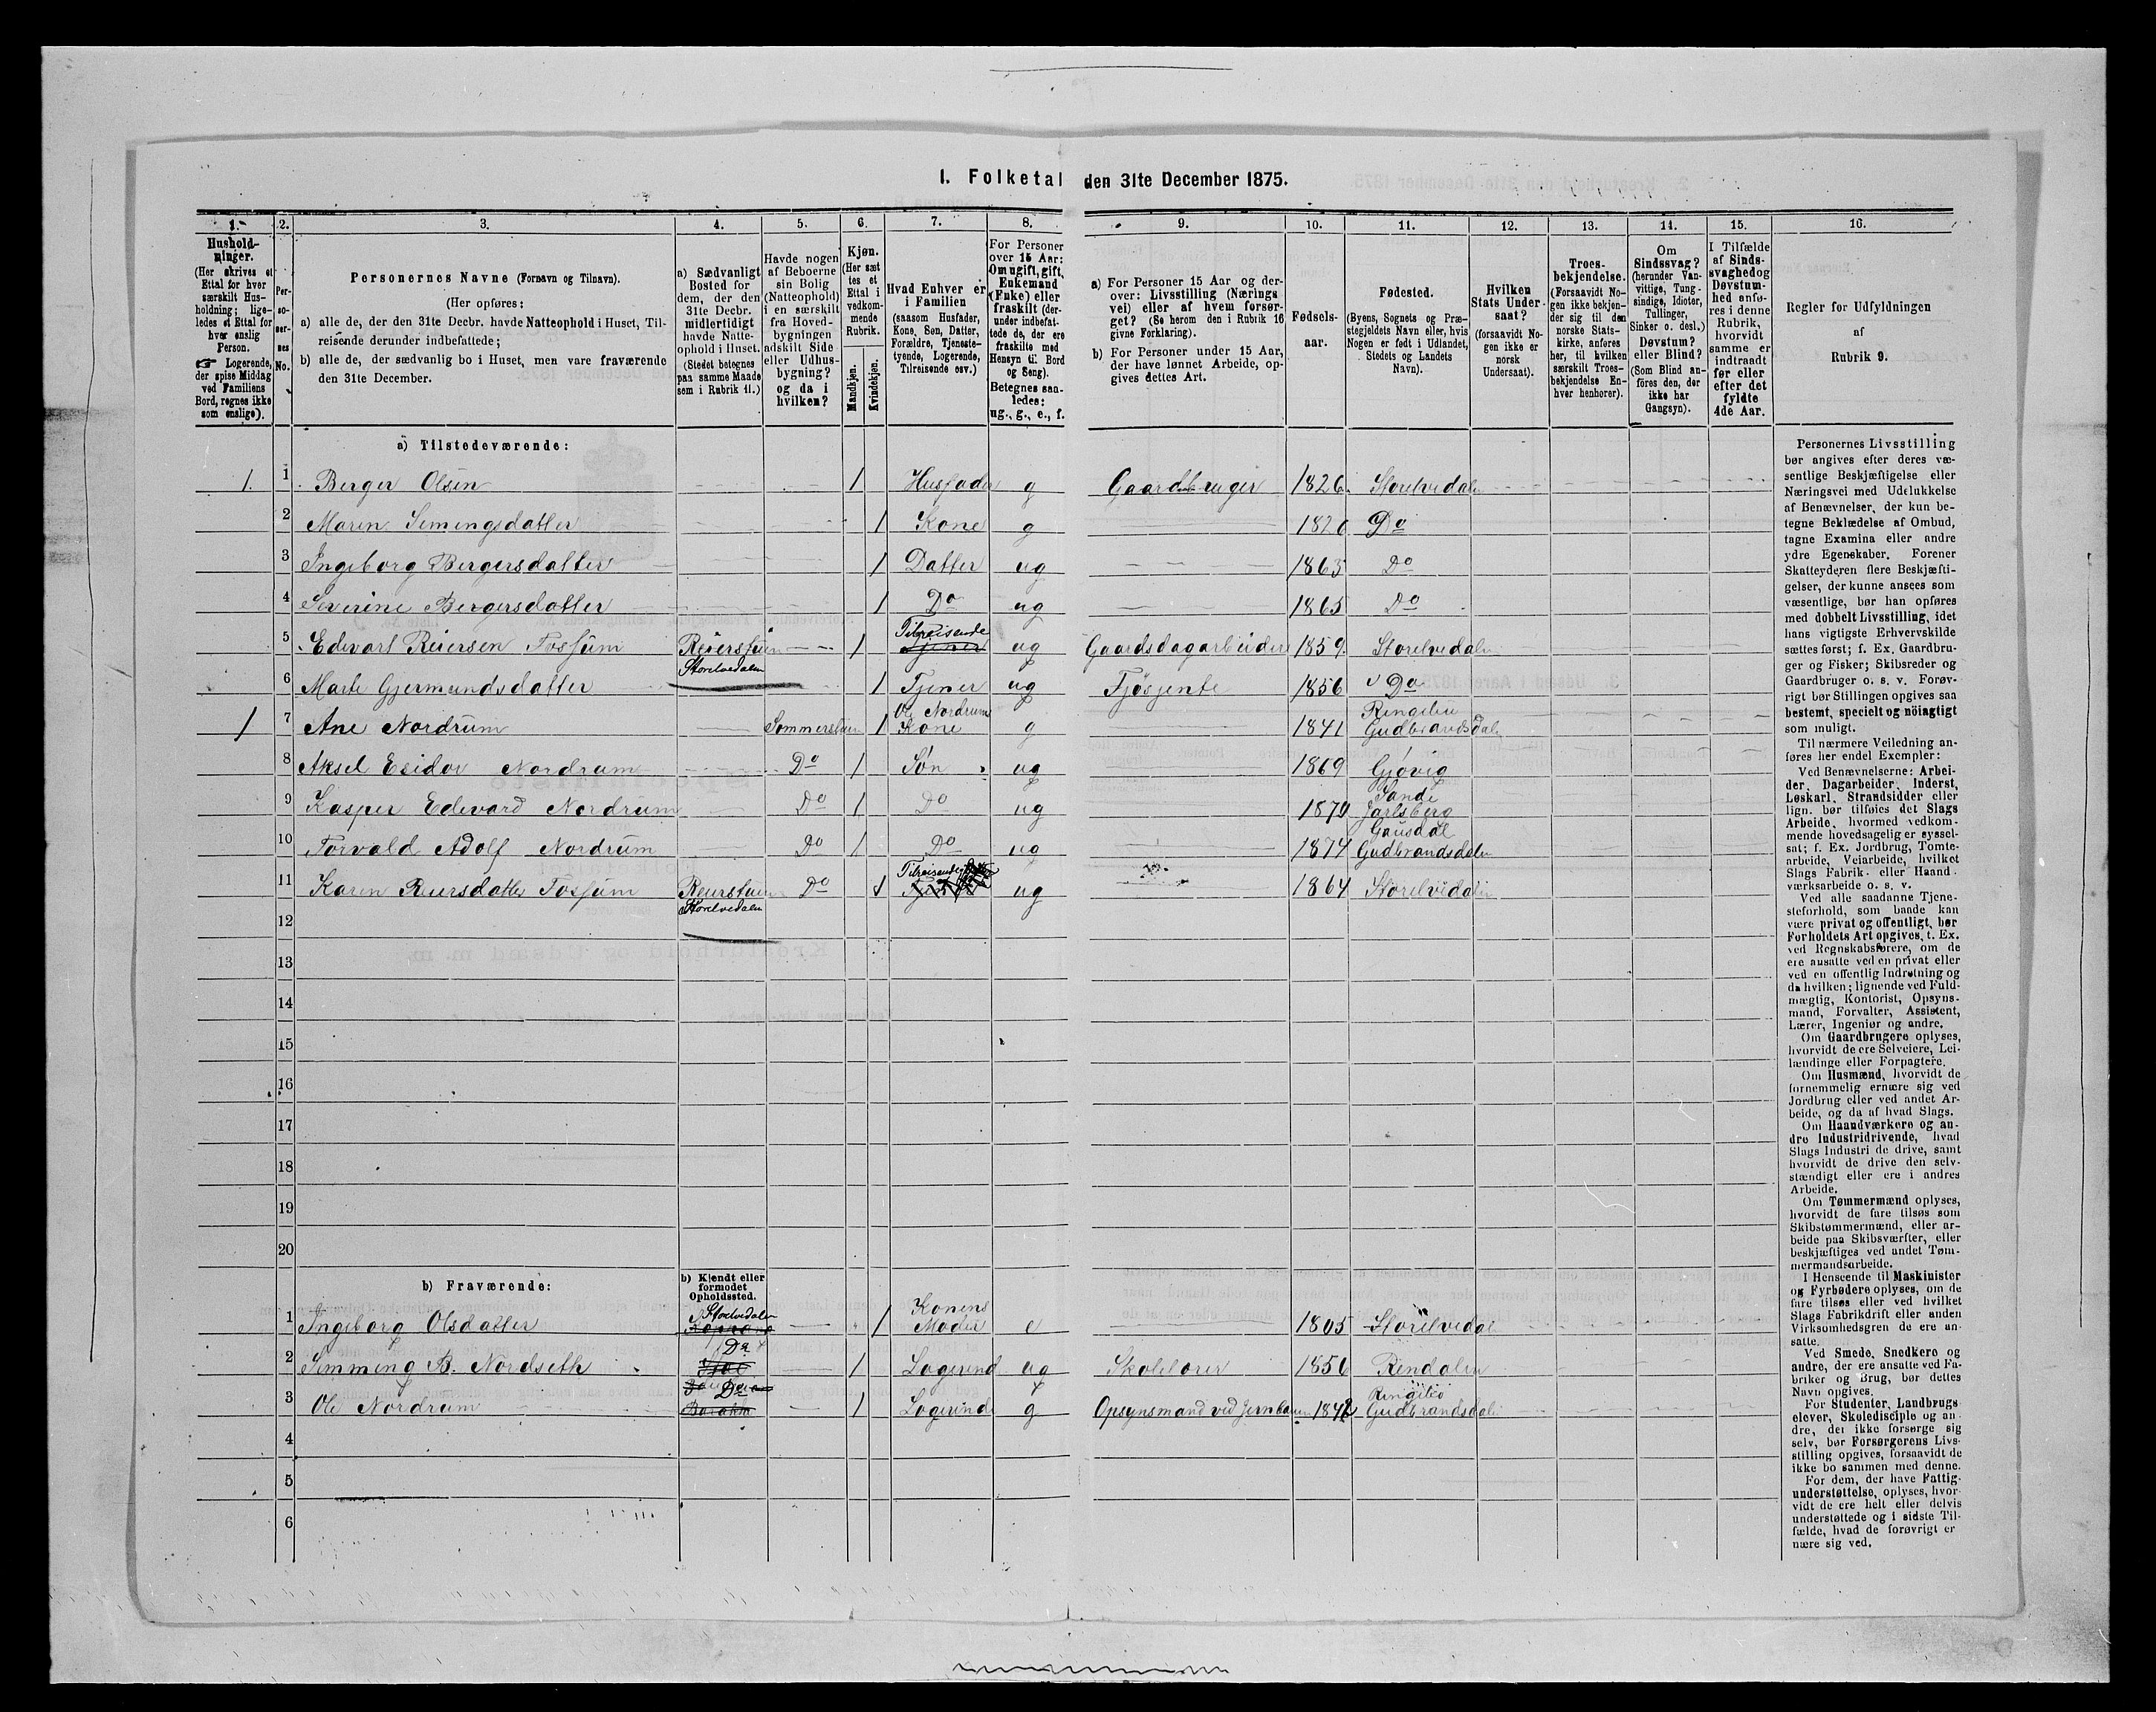 1. Folketal den 31te December 1875.
1. 2. 3. 4. 5. 6. 7. 8. 9. 10. 11. 12. 13. 14. 15. 16.
Hushold-
ninger.
(Her skrives et
Ettal for hver
særskilt Hus-
holdning; lige-
ledes et Ettal for
hver enslig
Person.
☞ Logerende,
der spise Middag
ved Familiens
Bord, regnes ikke
som enslige).
Per-
so-
ner-
nes
No.
Personernes Navne (Fornavn og Tilnavn).
(Her opføres:
a) alle de, der den 31te Decbr. havde Natteophold i Huset, Til-
reisende derunder indbefattede;
b) alle de, der sædvanlig bo i Huset, men vare fraværende
den 31te December.
a) Sædvanligt
Bosted for
dem, der den
31te Decbr.
midlertidigt
havde Natte-
ophold i Huset.
(Stedet betegnes
paa samme Maade
sem i Rubrik 11.)
Havde nogen
af Beboerne
sin Bolig
(Natteophold)
i en særskilt
fra Hoved-
bygningen
adskilt Side
eller Udhus-
bygning?
og da i
hvilken?
Kjøn.
(Her sæt
tes et
Ettal i
vedkom-
mende
Rubrik.
Mandkjøn.
Kvindekjøn.
Hvad Enhver er
i Familien
(saasom Husfader,
Kone, Søn, Datter,
Forældre, Tjeneste-
tyende, Logerende,
Tilreisende osv.)
For Personer
over 15 Aar:
Om ugift, gift,
Enkemand
(Enke) eller
fraskilt (der-
under indbefat-
tede de, der ere
fraskilte med
Hensyn til Bord
og Seng).
Betegnes saa-
ledes:
ug., g., e., f.
a) For Personer 15 Aar og der-
over: Livsstilling (Nærings
vei) eller af hvem forsør-
get? (Se herom den i Rubrik 16
givne Forklaring).
b) For Personer under 15 Aar,
der have lønnet Arbeide, op-
gives dettes Art.
Fødsels-
aar.
Fødested.
(Byens, Sognets og Præ-
stegjeldets Navn eller, hvis
Nogen er født i Udlandet,
Stedets og Landets
Navn).
Hvilken
Stats Under-
saat?
(forsaavidt No-
gen ikke er
norsk
Undersaat).
Troes-
bekjendelse.
(Forsaavidt No-
gen ikke bekjen-
der sig til den
norske Stats-
kirke, anføres
her, til hvilken
særskilt Troes-
bekjendelse En-
hver henhører).
Om
Sindssvag?
(herunder Van-
vittige, Tung-
sindige, Idioter,
Tullinger,
Sinker o. desl.)
Døvstum?
eller Blind?
(Som Blind an-
føres den, der
ikke har
Gangsyn).
I Tilfælde
af Sinds-
svaghed og
Døvstum-
hed anfø-
res i denne
Rubrik,
hvorvidt
samme er
indtraadt
før eller
efter det
fyldte
4de Aar.
Regler for Udfyldningen
af
Rubrik 9.
a) Tilstedeværende:
1. 1 Berger Olsen 1 Husfader g Gaardbruger 1826. Storelvedalen
2 Maren Semingsdatter 1 Kone g 1820 Do
3 Ingeborg Bergersdatter 1 Datter ug 1863 Do
4 Severine Bergersdatter 1 Do ug 1865 Do
5 Edevart Reiersen Fossum Reierstuen Storelvedalen 1 Tilreisende Tjener ug Gaardsdagarbeider 1859. Storelvedalen
6 Marte Gjermundsdatter 1 Tjener ug Fjøsjente 1856 Do
1 7 Ane Nordrum Sommerstuen 1 Ole Nordrums Kone g 1841 Ringebu Gudbrandsdalen
8 Aksel Esidor Nordrum Do 1 Søn ug 1869 Gjøvig
9 Kasper Edevard Nordrum Do 1 Do ug 1870 Sande Jarlsberg
10 Torvald Adolf Nordrum Do 1 Do ug 1874 Gausdal Gudbrandsdalen
11 Karen Reiersdatter Fossum Reierstuen Storelvedalen Do 1 Tilreisende ug 1864 Storelvedalen
12
13
14
15
16
17
18
19
20
b) Fraværende:
b) Kjendt eller
formodet
Opholdssted.
1 Ingeborg Olsdatter Storelvedalen 1 Konens Moder e 1805 Storelvedal
2 Semming B. Nordseth Do 1 Logerend ug Skolelærer 1856 Rendalen
3 Ole Nordrum Do 1 Logerende g Opsynsmand ved Jernbanen 1842 Ringebo Gudbrandsdalen
4
5
6
Personernes Livsstilling
bør angives efter deres væ-
sentlige Beskjæftigelse eller
Næringsvei med Udelukkelse
af Benævnelser, der kun be-
tegne Beklædelse af Ombud,
tagne Examina eller andre
ydre Egenskaber. Forener
Skatteyderen flere Beskjæfti-
gelser, der kunne ansees som
væsentlige, bør han opføres
med dobbelt Livsstilling, idet
hans vigtigste Erhvervskilde
sættes først; f. Ex. Gaardbru-
ger og Fisker; Skibsreder og
Gaardbruger o. s. v. Forøv-
rigt bør Stillingen opgives saa
bestemt, specielt og nöiagtigt
som muligt.
Til nærmere Veiledning an-
føres her endel Exempler:
Ved Benævnelserne: Arbei-
der, Dagarbeider, Inderst,
Løskarl, Strandsidder eller
lign. bør tilføies det Slags
Arbeide, hvormed vedkom-
mende hovedsagelig er syssel-
sat; f. Ex. Jordbrug, Tomte-
arbeide, Veiarbeide, hvilket
Slags Fabrik- eller Haand-
værksarbeide o. s. v.
Ved alle saadanne Tjene-
steforhold, som baade kan
være privat og offentligt, bør
Forholdets Art opgives, t. Ex.
ved Regnskabsførere, om de
ere ansatte ved en privat eller
ved en offentlig Indretning og
da hvilken; lignende ved Fuld-
mægtig, Kontorist, Opsyns-
mand, Forvalter, Assistent,
Lærer, Ingeniør og andre.
Om Gaardbrugere oplyses,
hvorvidt de ere Selveiere, Lei-
lændinge eller Forpagtere.
Om Husmænd, hvorvidt de
fornemmelig ernære sig ved
Jordbrug eller ved andet Ar-
beide, og da af hvad Slags.
Om Haandværkere og an-
dre Industridrivende, hvad
Slags Industri de drive, samt
hvorvidt de drive den selv-
stændigt eller ere i andres
Arbeide.
Om Tømmermænd oplyses,
hvorvidt de fare tilsøs som
Skibstømmermænd, eller ar-
beide paa Skibsværfter, eller
beskjæftiges ved andet Tøm-
mermandsarbeide.
I Henseende til Maskinister
og Fyrbødere oplyses, om de
fare tilsøs eller ved hvilket
Slags Fabrikdrift eller anden
Virksomhedsgren de ere an-
satte.
Ved Smede, Snedkere og
andre, der ere ansatte ved Fa-
briker og Brug, bør dettes
Navn opgives.
For Studenter, Landbrugs
elever, Skoledisciple og an-
dre, der ikke forsørge sig
selv, bør Forsørgerens Livs-
stilling opgives, forsaavidt de
ikke bo sammen med denne.
For dem, der have Fattig-
understøttelse, oplyses, hvor-
vidt de ere helt eller delvis
understøttede og i sidste Til-
fælde, hvad de forøvrigt er
nære sig ved.